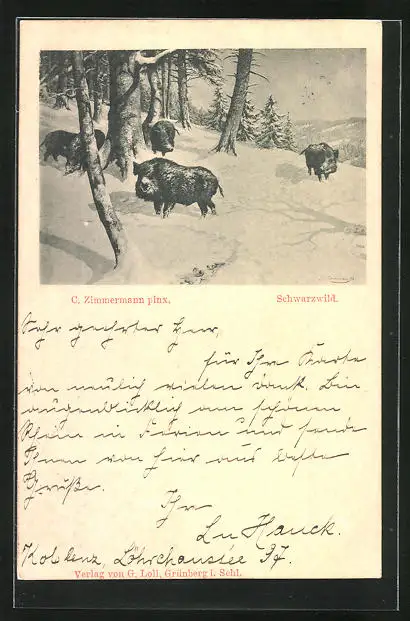 C. Zimmermann pinx.
Schwarzwild.
Sehr geehrter Herr,
für Ihre Karte
von neulich vielen Dank. Bin
augenblicklich am schönen
Rhein in Ferien und sende
Ihnen von hier aus beste
Grüße.
Ihr
Lu Hauck.
Koblenz, Löhrchaussée 97.
Verlag von G. Loll, Grünberg i. Schl.